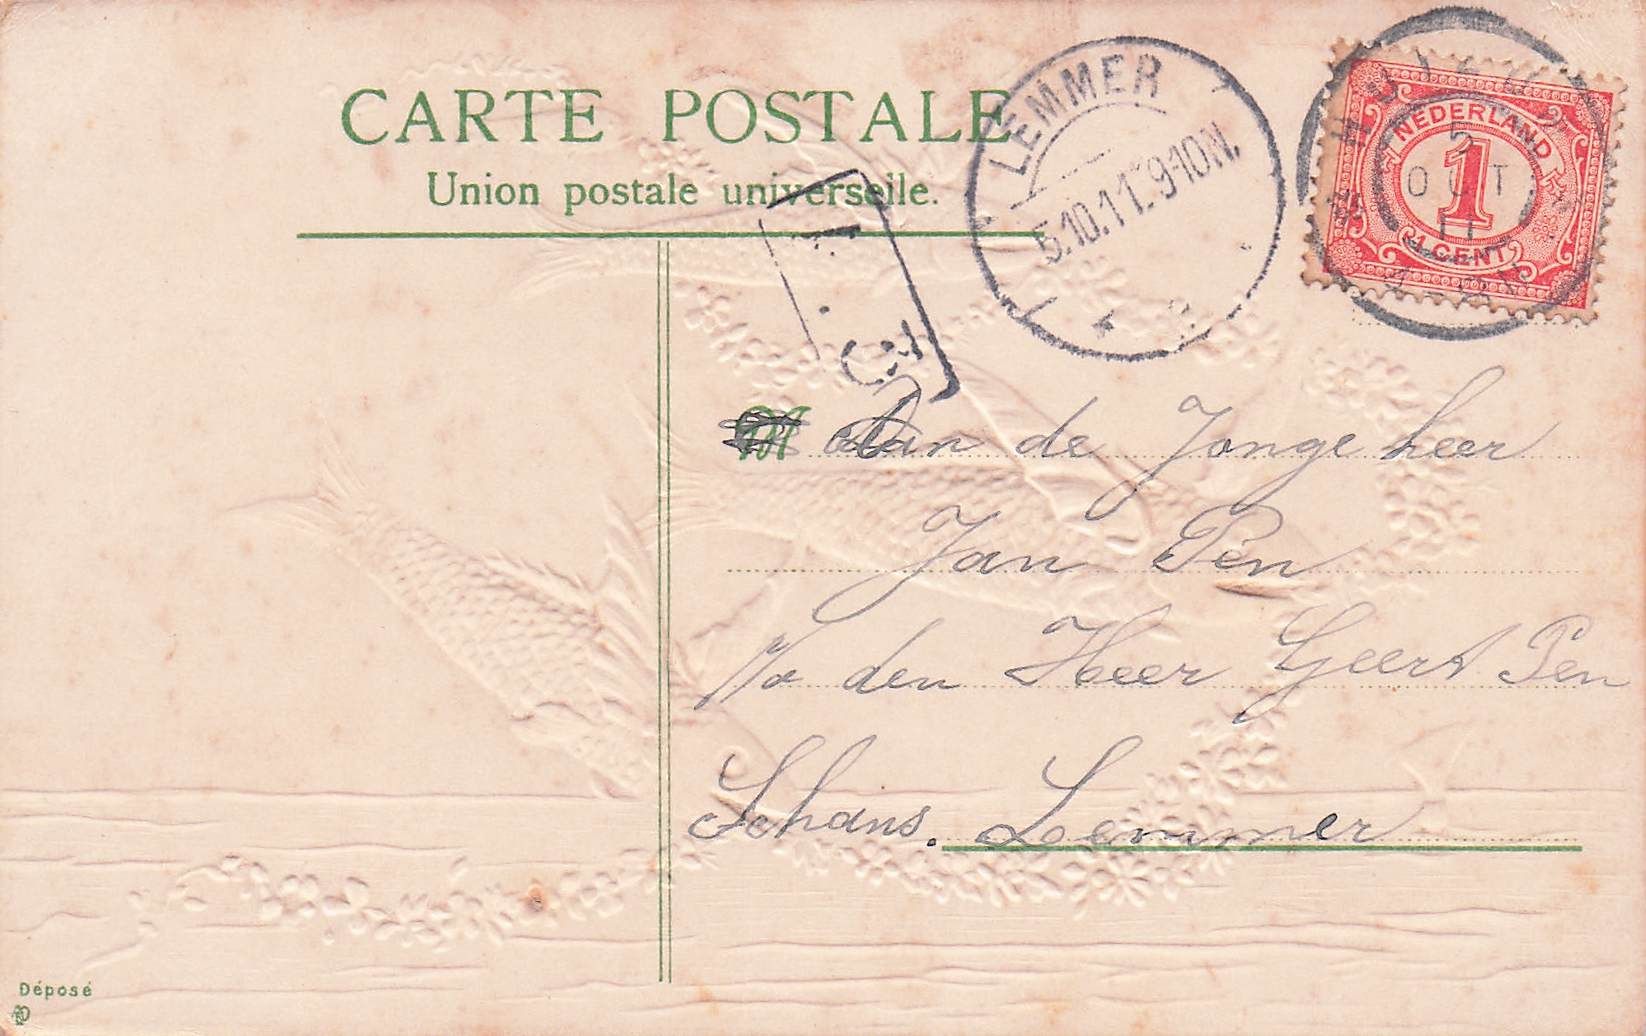 CARTE POSTALE
Union postale universelle.
LEMMER
5.10.11. 9-10N.
NEDERLAND
1
1 CENT
5
OCT
11
M Aan de Jonge heer
Jan Pen
p/a den Heer Geert Pen
Schans. Lemmer
Déposé